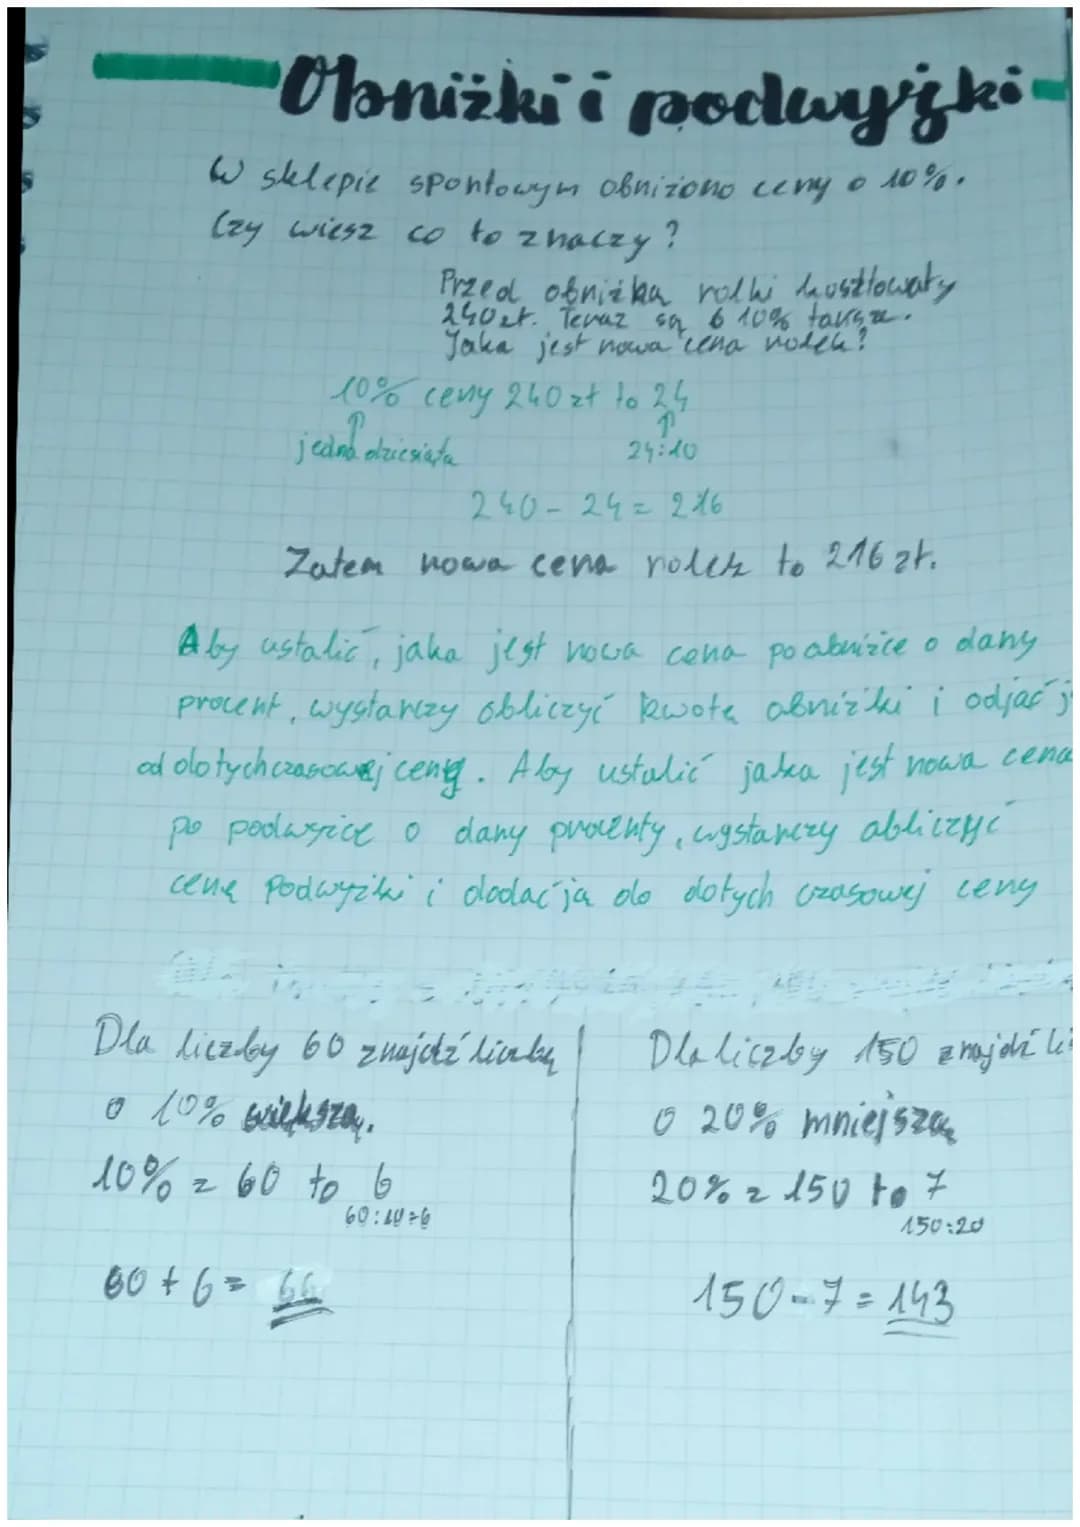 Obniżki i podwyżki
W sklepie sportowym obniżono ceny o 10%.
Czy wiesz co to znaczy?
Przed obniżką rolki kosztowały
240 zł. Teraz są o 10% tańsze.
Jaka jest nowa cena rolek?
10% ceny 240 zł to 24
jedna dziesiąta 24:10
240 - 24 = 216
Zatem nowa cena rolek to 216 zł.
Aby ustalić, jaka jest nowa cena po obniżce o dany
procent, wystarczy obliczyć kwotę obniżki i odjąć j
od dotychczasowej ceny. Aby ustalić jaka jest nowa cena
po podwyżce o dany procenty, wystarczy obliczyć
cenę podwyżki i dodać ją do dotychczasowej ceny
Dla liczby 60 znajdź liczbę
o 10% większą.
10% z 60 to 6
60:10=6
60 + 6 = 66
Dla liczby 150 znajdź li
o 20% mniejszą
20% z 150 to 7
150:20
150-7 = 143